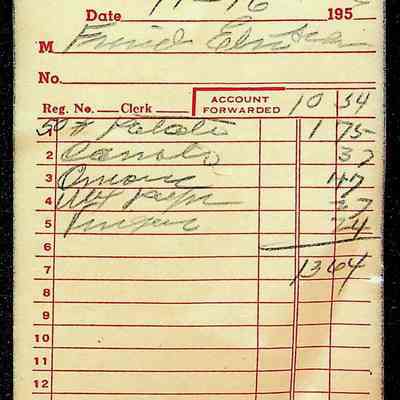 Date 11-16 195
M Friend
No.
Reg. No. Clerk ACCOUNT FORWARDED 10 34
50# Potato 1 75
2 Carrots 37
3 Onions 47
4 Wax paper 37
5 74
6
7 13 64
8
9
10
11
12